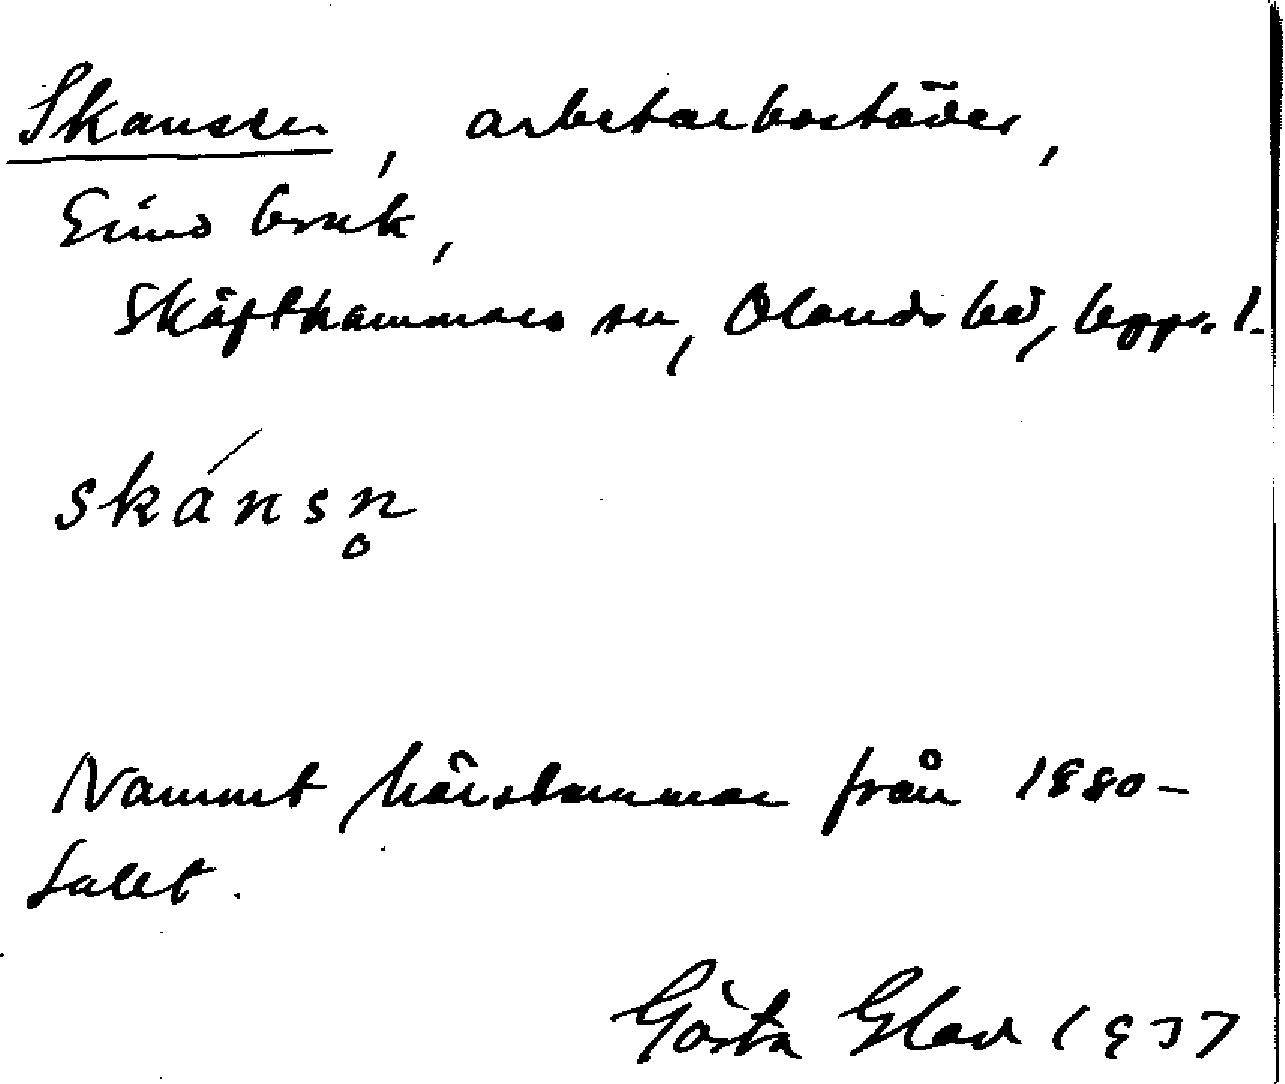 Skansen, arbetarbostäder,
Gimo bruk,
Skäfthammars sn, Olands hd, Upps. l.
skánsn̥
Namnet härstammar från 1880-
talet.
Gösta Elad 1937